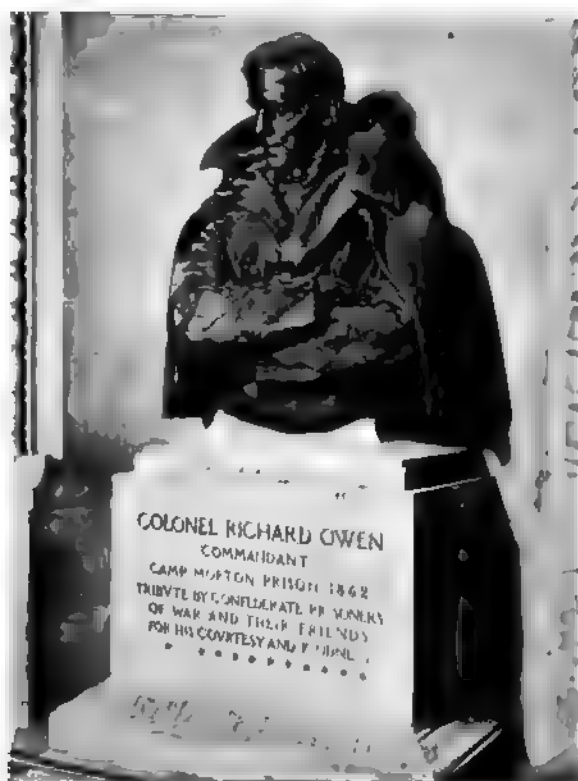 COLONEL RICHARD OWEN
COMMANDANT
CAMP MORTON PRISON 1862
TRIBVTE BY CONFEDERATE PRISONERS
OF WAR AND THEIR FRIENDS
FOR HIS COVRTESY AND